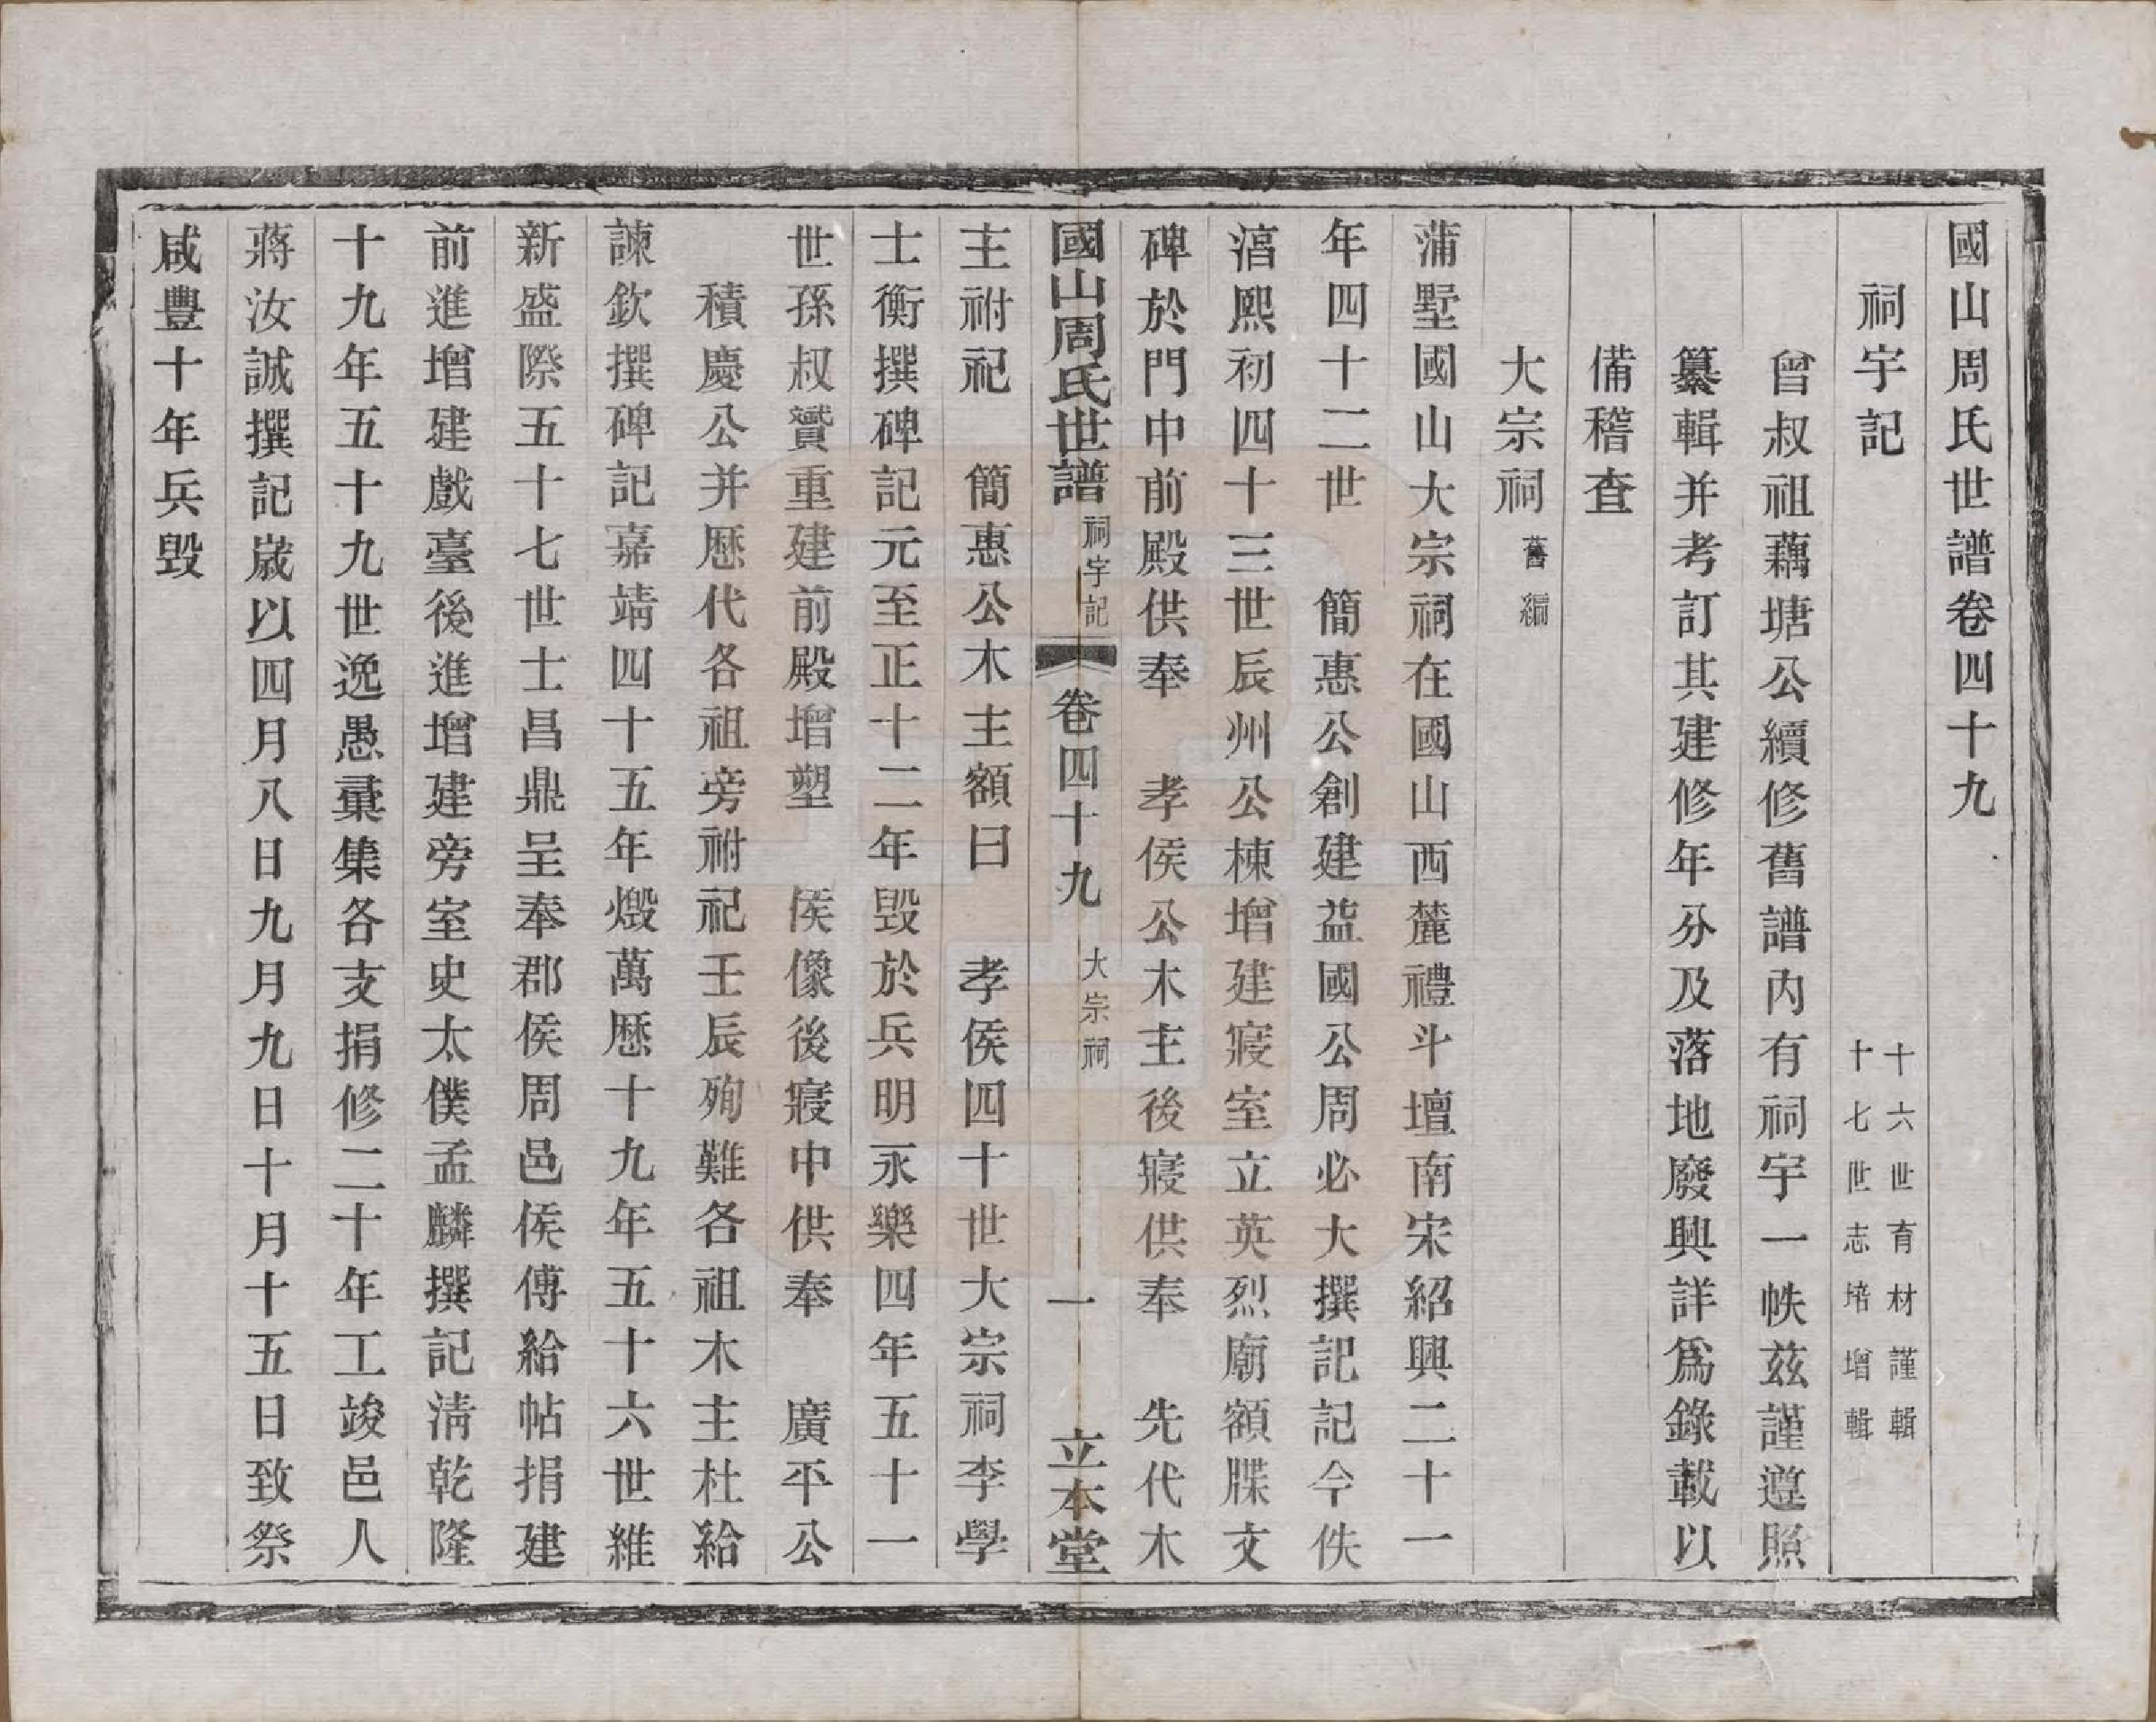 國山周氏世譜卷四十九
祠宇記
十六世育材謹輯
十七世志培增輯
曾叔祖藕塘公續修舊譜內有祠宇一帙茲謹遵照
纂輯并考訂其建修年分及落地廢興詳爲錄載以
備稽查
大宗祠 舊編
蒲墅國山大宗祠在國山西麓禮斗壇南宋紹興二十一
年四十二世 簡惠公創建益國公周必大撰記記今佚
淳熙初四十三世辰州公棟增建寢室立英烈廟額牒文
碑於門中前殿供奉 孝侯公木主後寢供奉 先代木
國山周氏世譜 祠宇記 卷四十九 大宗祠 一 立本堂
主祔祀 簡惠公木主額曰 孝侯四十世大宗祠李學
士衡撰碑記元至正十二年毀於兵明永樂四年五十一
世孫叔贇重建前殿增塑 侯像後寢中供奉 廣平公
積慶公并歷代各祖旁祔祀壬辰殉難各祖木主杜給
諫欽撰碑記嘉靖四十五年燬萬歷十九年五十六世維
新盛際五十七世士昌鼎呈奉郡侯周邑侯傅給帖捐建
前進增建戲臺後進增建旁室史太僕孟麟撰記淸乾隆
十九年五十九世逸愚彙集各支捐修二十年工竣邑人
蔣汝誠撰記歲以四月八日九月九日十月十五日致祭
咸豐十年兵毀